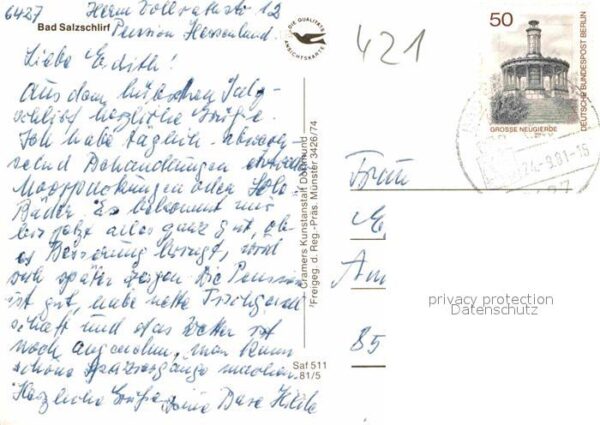 6427 Herm. Vollrathstr. 12
Bad Salzschlirf Pension Hessenland.
Liebe Edith!
Aus dem hübschen Salz-
schlirf herzliche Grüße.
Ich habe täglich abwech-
selnd Behandlungen
Moorpackungen oder Sole-
Bäder. Es bekommt mir
bis jetzt alles ganz gut, ob
es Besserung bringt, wird
sich später zeigen. Die Pension
ist gut, habe nette Tischgesell
schaft und das Wetter ist
noch angenehm, man kann
schöne Spaziergänge machen.
Herzliche Grüße Deine Base Hilde
DIE QUALITÄTS
ANSICHTSKARTE
Cramers Kunstanstalt Dortmund
Freigeg. d. Reg.-Präs. Münster 3426/74
Saf 511
81/5
421
50
DEUTSCHE BUNDESPOST BERLIN
GROSSE NEUGIERDE
24.-9.81-15
Frau
E
Am
85
privacy protection
Datenschutz